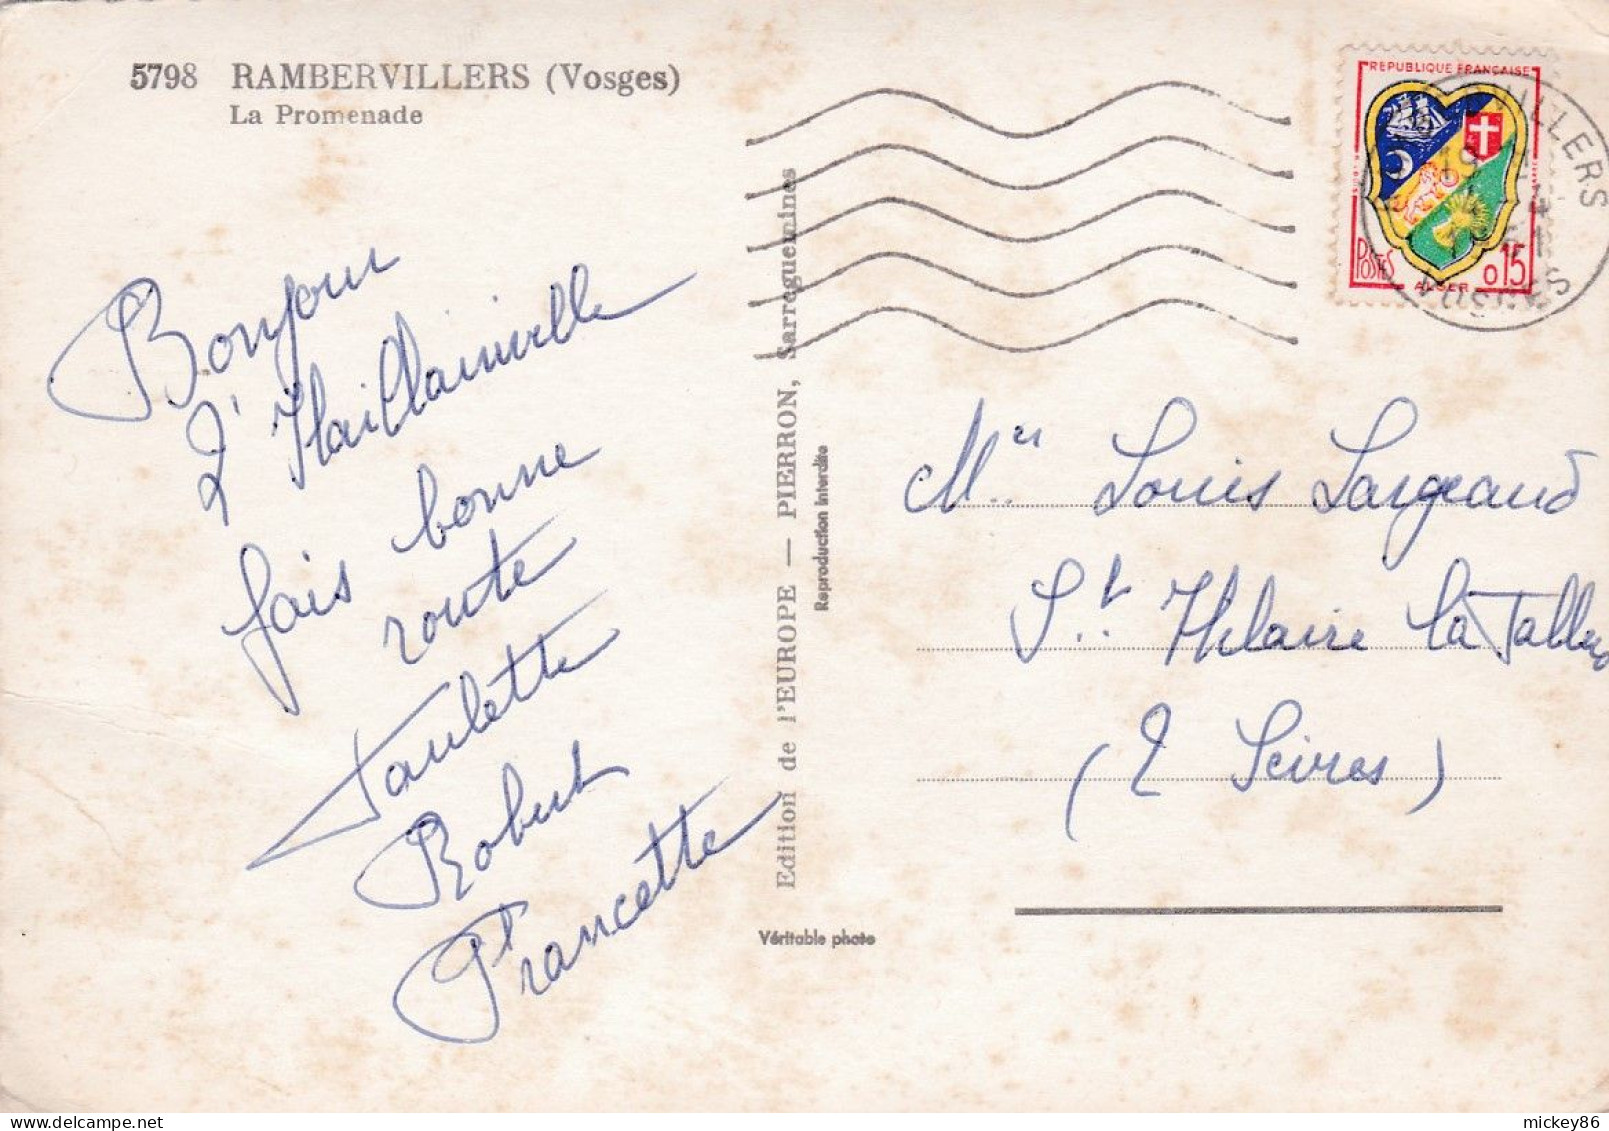 5798 RAMBERVILLERS (Vosges)
La Promenade
Bonjour
d'Haillainville
fais bonne
route
Paulette
Robert
Francette
Edition de l'EUROPE — PIERRON, Sarreguemines
Reproduction interdite
Véritable photo
REPUBLIQUE FRANÇAISE
POSTES
ALGER
0,15
VILLERS
VOSGES
Louis Largeaud
St Hilaire la
(2 Sèvres)
mickey86